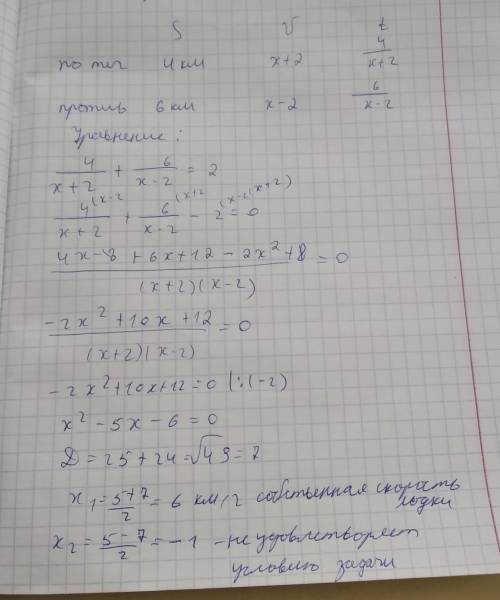 S V t
по теч 4 км x+2 4/(x+2)
против 6 км x-2 6/(x-2)
Уравнение:
4/(x+2) + 6/(x-2) = 2
4(x-2/(x+2) + 6(x+2/(x-2) - 2(x-2)(x+2) = 0
(4x-8+6x+12-2x²+8)/((x+2)(x-2)) = 0
(-2x²+10x+12)/((x+2)(x-2)) = 0
-2x²+10x+12=0 |:(-2)
x²-5x-6=0
D=25+24=√49=7
x₁=(5+7)/2=6 км/ч собственная скорость
лодки
x₂=(5-7)/2=-1 -не удовлетворяет
условию задачи